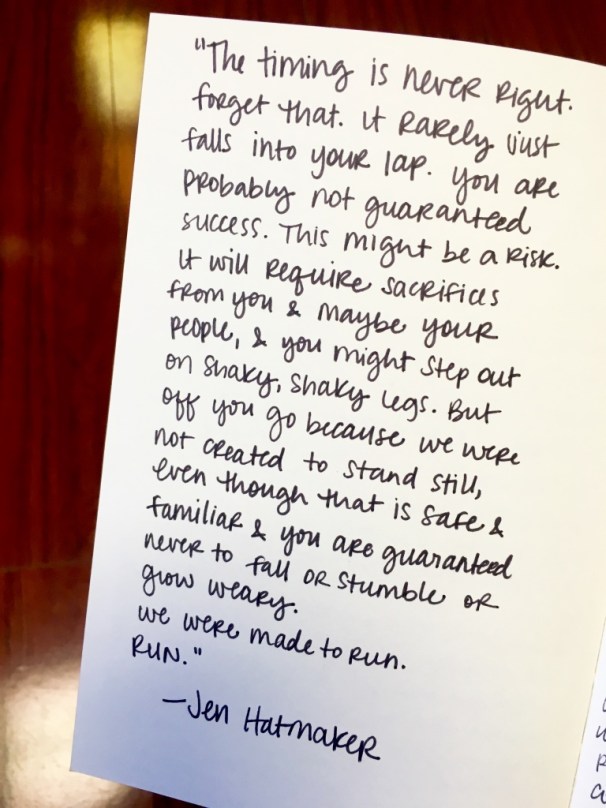 "The timing is never right.
forget that. it rarely just
falls into your lap. you are
probably not guaranteed
success. This might be a risk.
it will require sacrifices
from you & maybe your
people, & you might step out
on shaky, shaky legs. But
off you go because we were
not created to stand still,
even though that is safe &
familiar & you are guaranteed
never to fall or stumble or
grow weary.
we were made to run.
RUN."
—Jen Hatmaker